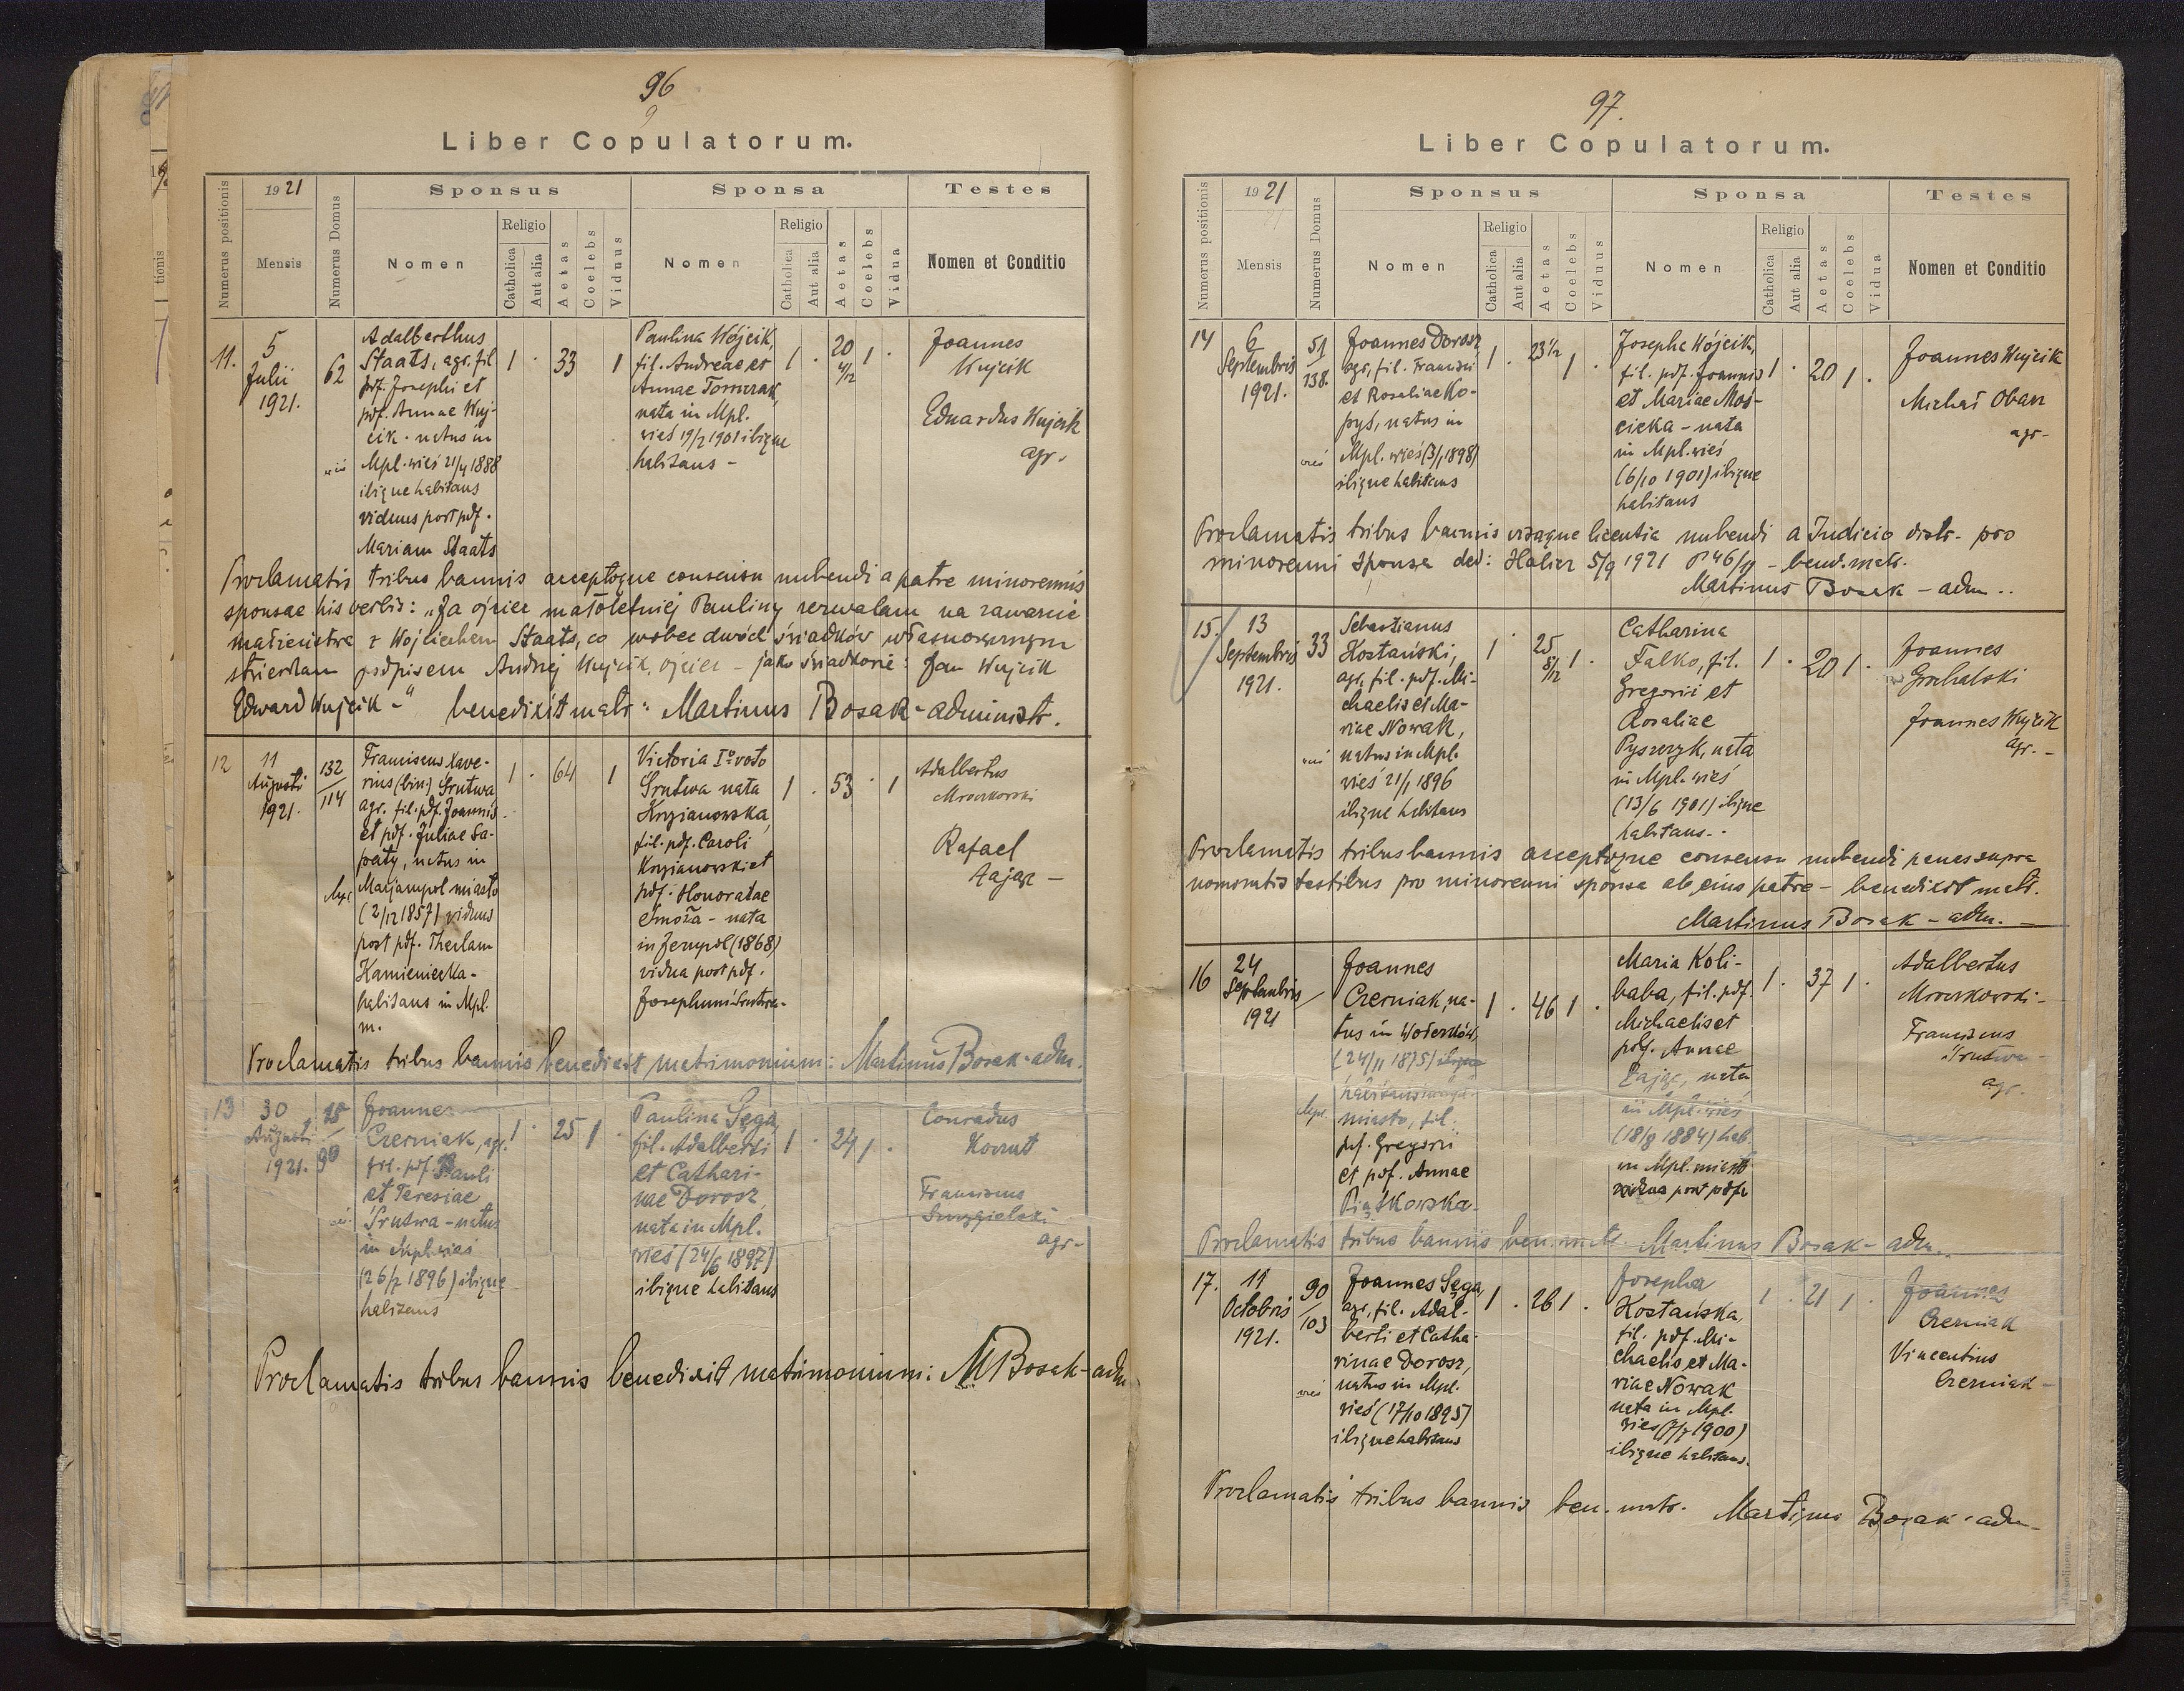 96
Liber Copulatorum.
Numerus positionis
1921
Mensis
Numerus Domus
Sponsus
Nomen
Religio
Catholica
Aut alia
Aetas
Coelebs
Viduus
Sponsa
Nomen
Religio
Catholica
Aut alia
Aetas
Coelebs
Vidua
Testes
Nomen et Conditio
11.
5
Julii
1921.
62
wieś
Adalberthus
Staats, agr. fil
pdf. Josephi et
pdf. Annae Wuj-
cik - natus in
Mpl. wieś 21/4 1888
ibique habitans
viduus post pdf.
Mariam Staats
1 . 33 1
Paulina Wójcik,
fil. Andreae et
Annae Tomczak,
nata in Mpl.
wieś 19/2 1901 ibique
habitans -
1 . 20 4/12 1 .
Joannes
Wujcik
Eduardus Wujcik
agr.
Proclamatis tribus bannis acceptoque consensu nubendi a patre minorennis
sponsae his verbis: „Ja ojciec małoletniej Pauliny zezwalam na zawarcie
małżeństwa z Wojciechem Staats, co wobec dwóch świadków własnoręcznym
stwierdzam podpisem Andrzej Wujcik, ojciec - jako świadkowie: Jan Wujcik
Edward Wujcik -" benedixit matr: Martinus Bosak - administr.
12
11
Augusti
1921.
132/114
Mpl.
Franciscus Xave-
rius (bin.) Srutwa
agr. fil. pdf. Joannis
et pdf. Juliae Sa-
paty, natus in
Marjampol miasto
(2/12 1857) viduus
post pdf. Theclam
Kamieniecka -
habitans in Mpl.
m.
1 . 64 1
Victoria Iº voto
Srutwa nata
Kryzianowska,
fil. pdf. Caroli
Kryzianowski et
pdf. Honoratae
Smoła - nata
in Jezupol (1868)
vidua post pdf.
Josephum Srutwa -
1 . 53 . 1
Adalbertus
Mroczkowski
Rafael
Zając -
Proclamatis tribus bannis benedixit matrimonium: Martinus Bosak - adm.
13
30
Augusti
1921.
90
Joannes
Czerniak, agr.
fil. pdf. Pauli
et Teresiae
Srutwa - natus
in Mpl. wieś
(26/2 1896) ibique
habitans
1 . 25 1 .
Paulina Sęga,
fil. Adalberti
et Cathari-
nae Dorosz,
nata in Mpl.
wieś (24/6 1897)
ibique habitans
1 . 24 1 .
Conradus
Franciscus
agr -
Proclamatis tribus bannis benedixit matrimonium: M Bosak - adm
97.
Liber Copulatorum.
Numerus positionis
1921
Mensis
Numerus Domus
Sponsus
Nomen
Religio
Catholica
Aut alia
Aetas
Coelebs
Viduus
Sponsa
Nomen
Religio
Catholica
Aut alia
Aetas
Coelebs
Vidua
Testes
Nomen et Conditio
14
6
Septembris
1921.
51/138.
wieś
Joannes Dorosz,
agr., fil. Francisci
et Rosaliae Ko-
pyś, natus in
Mpl. wieś (3/1 1898)
ibique habitans
1 . 23 1/2 1 .
Josepha Wójcik,
fil. pdf. Joannis
et Mariae Mos-
cicka - nata
in Mpl. wieś
(6/10 1901) ibique
habitans
1 . 20 1 .
Joannes Wujcik
Michał Obacz
agr -
Proclamatis tribus bannis visaque licentia nubendi a Judicio distr. pro
minorenni sponsa ded: Halicz 5/9 1921 P 46/21 - bened. matr.
Martinus Bosak - adm..
15.
13
Septembris
1921.
33
wieś
Sebastianus
Kostański,
agr. fil. pdf. Mi-
chaelis et Ma-
riae Nowak,
natus in Mpl.
wieś 21/1 1896
ibique habitans
1 . 25 8/12 1 .
Catharina
Falko, fil.
Gregorii et
Rosaliae
Pyszczyk, nata
in Mpl. wieś
(13/6 1901) ibique
habitans -.
1 . 20 1 .
Joannes
Grochalski
Joannes Wujcik
agr. -
Proclamatis tribus bannis acceptoque consensu nubendi penes supra
nominatis testibus pro minorenni sponsa ab eius patre - benedixit matr.
Martinus Bosak - adm. -
16
24
Septembris
1921
Mpl.
Joannes
Czerniak, na-
tus in Wołczków,
(24/11 1875) ibique
miasto, fil.
pdf. Gregorii
et pdf. Annae
Piątkowska -
1 . 46 1 .
Maria Koli-
baba, fil. pdf.
Michaelis et
pdf. Annae
Zając, nata
in Mpl. wieś
(18/8 1884) hab.
in Mpl. miasto
vidua post pdf.
1 . 37 1 .
Adalbertus
Mroczkowski -
Franciscus
Srutwa -
agr.
Proclamatis tribus bannis ben. matr. Martinus Bosak - adm..
17.
11
Octobris
1921.
90/103
wieś
Joannes Sęga,
agr. fil. Adal-
berti et Catha-
rinae Dorosz,
natus in Mpl.
wieś (17/10 1895)
ibique habitans
1 . 26 1 .
Josepha
Kostańska,
fil. pdf. Mi-
chaelis et Ma-
riae Nowak
nata in Mpl.
wieś 1900)
ibique habitans.
1 . 21 1 .
Joannes
Czerniak
Vincentius
Czerniak -
Proclamatis tribus bannis ben. matr. Martinus Bosak - adm -